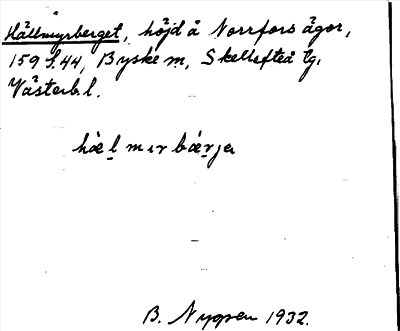 Hällmyrberget, höjd å Norrfors ägor,
159 f. 44, Byske sn, Skellefteå tg,
Västerb. l.
B. Nygren 1932.